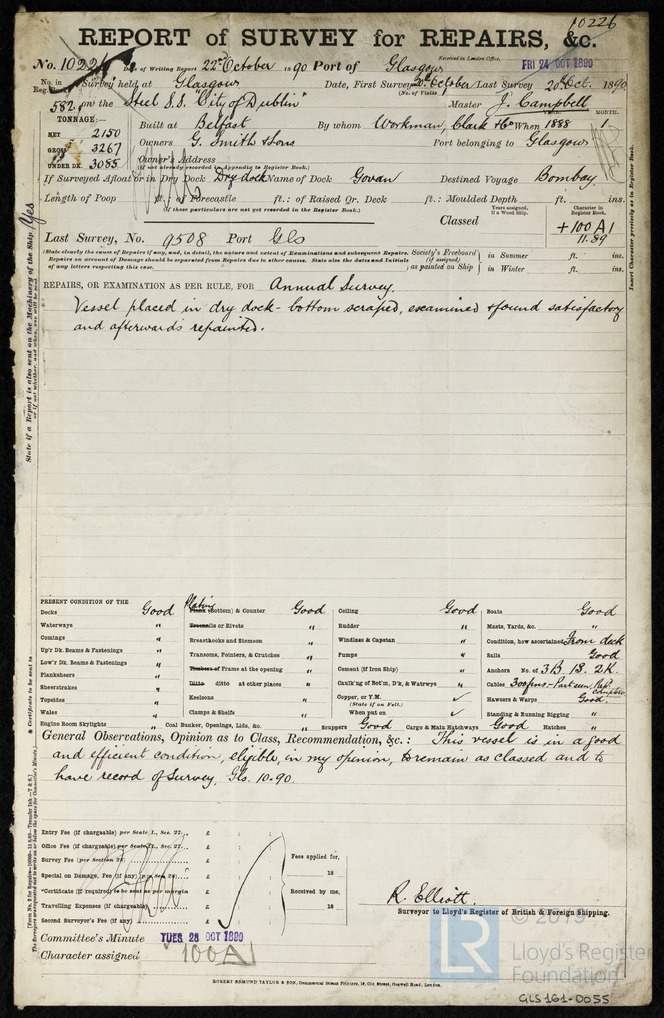 10226
REPORT of SURVEY for REPAIRS, &c.
No. 10226 Date of Writing Report 22d October 1890 Port of Glasgow
Received in London Office, FRI 24 OCT 1890
No. in Reg. Survey held at Glasgow Date, First Survey October Last Survey 20th Oct. 1890
(No. of Visits
582 on the Steel S.S. "City of Dublin" Master J. Campbell
TONNAGE:—
NET 2150
GROSS 3267
UNDER DK. 3085
Built at Belfast By whom Workman, Clark & Co When 1888 MONTH. 1
Owners G. Smith & Sons Port belonging to Glasgow
Owner's Address
(if not already recorded in Appendix to Register Book.)
If Surveyed Afloat or in Dry Dock Dry dock Name of Dock Govan Destined Voyage Bombay.
Length of Poop ft.: of Forecastle ft.: of Raised Qr. Deck ft.: Moulded Depth ft. ins.
(If these particulars are not yet recorded in the Register Book.)
Classed
Years assigned, if a Wood Ship.
Character in Register Book.
+100A1
11.89
Last Survey, No. 9508 Port Gls
(State clearly the cause of Repairs if any, and, in detail, the nature and extent of Examinations and subsequent Repairs.
Repairs on account of Damage should be separated from Repairs due to other causes. State also the dates and Initials
of any letters respecting this case.
Society's Freeboard (if assigned) as painted on Ship
in Summer ft. ins.
in Winter ft. ins.
REPAIRS, OR EXAMINATION AS PER RULE, FOR Annual Survey.
Vessel placed in dry dock - bottom scraped, examined & found satisfactory
and afterwards repainted.
State if a Report is also sent on the Machinery of the Ship Yes
or if not whether, and when, one will be sent
Insert Character precisely as in Register Book.
* Certificate to be sent to
PRESENT CONDITION OF THE
Decks Good
Waterways "
Comings "
Up'r Dk. Beams & Fastenings "
Low'r Dk. Beams & Fastenings "
Planksheers "
Sheerstrakes "
Topsides "
Wales "
Engine Room Skylights "
Plating
Plank (Bottom) & Counter Good
Treenails or Rivets "
Breasthooks and Stemson "
Transoms, Pointers, & Crutches "
Timbers or Frame at the opening "
Ditto ditto at other places "
Keelsons "
Clamps & Shelfs "
Coal Bunker, Openings, Lids, &c. "
Ceiling Good
Rudder "
Windlass & Capstan "
Pumps "
Cement (if Iron Ship) "
Caulk'ng of Bot'm, D'k, & Watrwys "
Copper, or Y.M. ✓
(State if on Felt.)
When put on ✓
Scuppers Good Cargo & Main Hatchways Good Hatches "
Boats Good
Masts, Yards, &c. "
Condition, how ascertained From deck
Sails Good
Anchors No. of 3B. 1S. 2K.
Cables 300 fms. - Part seen, Rep. complete
Hawsers & Warps Good.
Standing & Running Rigging "
General Observations, Opinion as to Class, Recommendation, &c.: This vessel is in a good
and efficient condition, eligible, in my opinion, to remain as classed and to
have record of Survey, Gls. 10.90.
Entry Fee (if chargeable) per Scale I., Sec. 27... £ : :
Office Fee (if chargeable) per Scale I., Sec. 27... £ : :
Survey Fee (per Section 28) £ : :
Special on Damage, Fee (if any) per Sec. 28) £ : :
*Certificate (if required) to be sent as per margin £ : :
Travelling Expenses (if chargeable) £ : :
Second Surveyor's Fee (if any) £ : :
Fees applied for,
18
Received by me,
18
R. Elliott.
Surveyor to Lloyd's Register of British & Foreign Shipping.
Committee's Minute TUES 28 OCT 1890
Character assigned 100A1
LR
Lloyd's Register
Foundation
ROBERT EDMUND TAYLOR & SON, Commercial Steam Printers, 19, Old Street, Goswell Road, London.
GLS161-0055